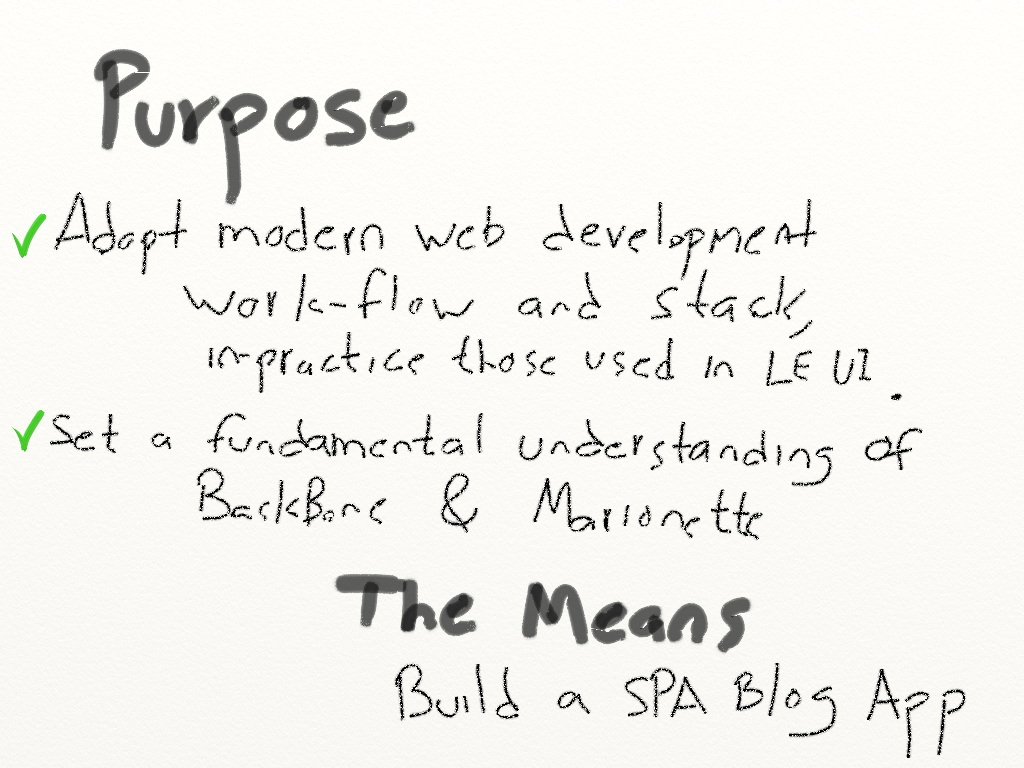 Purpose
Adopt modern web development
work-flow and stack,
in-practice those used in LE UI.
Set a fundamental understanding of
BackBone & Marionette
The Means
Build a SPA Blog App